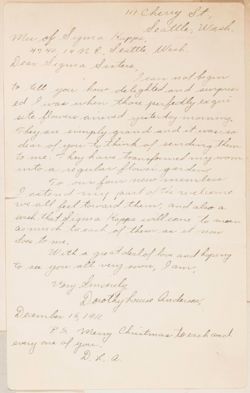 Cherry St.,
Seattle, Wash.
Mu, of Sigma Kappa,
N.E. Seattle, Wash.
Dear Sigma Sisters,
I can not begin
to tell you how delighted and surpris-
ed I was when those perfectly exqui-
site flowers arrived yesterday morning.
They are simply grand and it was so
dear of you to think of sending them
to me. They have transformed my room
into a regular flower garden.
To our four new members
I extend my part of the welcome
we all feel toward them, and also a
wish that Sigma Kappa will come to mean
as much to each of them as it now
does to me.
With a great deal of love and hoping
to see you all very soon, I am,
Very Sincerely
Dorothy Louise Anderson.
December 15,
P.S. Merry Christmas to each and
every one of you.
D. L. A.